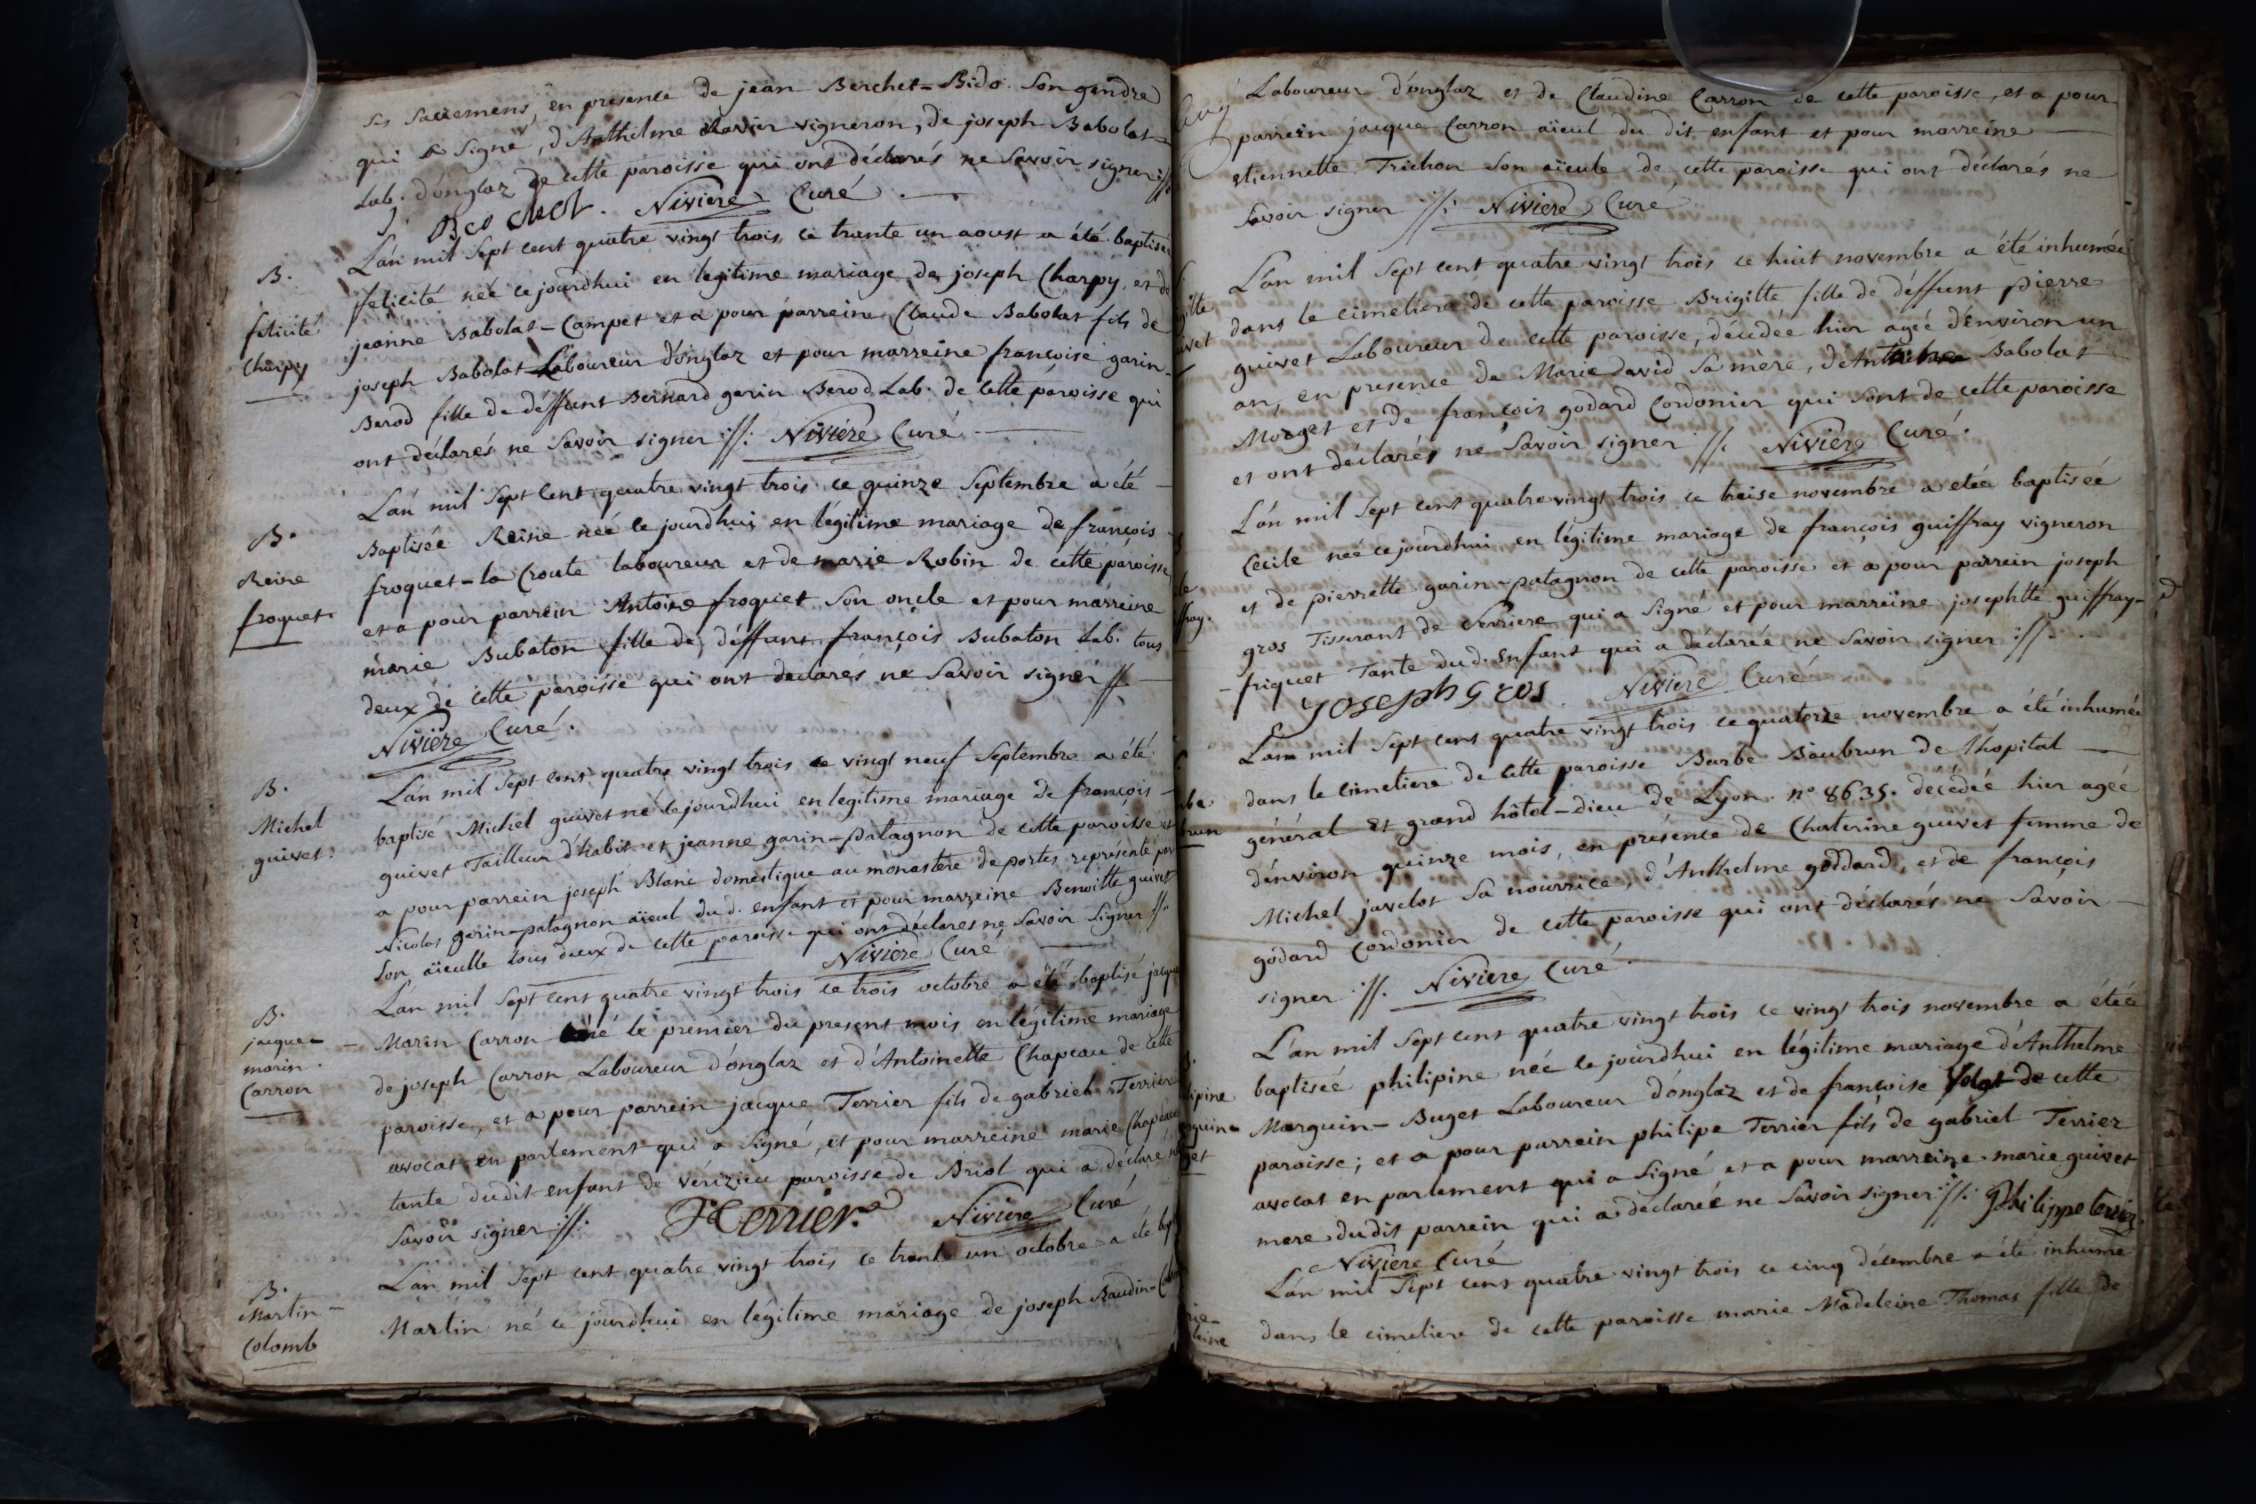 ses sacremens, en presence de jean Berchet-Bido son gendre
qui a signé, d'Anthelme Ravier vigneron, de joseph Babolat
Lab. d'onglaz de cette paroisse qui ont déclarés ne savoir signer //.
J. Berchet. Niviere Curé
B.
felicité
Charpy
L'an mil sept cent quatre vingt trois ce trante un aoust a été baptisée
felicité née cejourdhui en legitime mariage de joseph Charpy, et de
jeanne Babolat-Campet et a pour parreine Claude Babolat fils de
joseph Babolat Laboureur d'onglaz et pour marreine françoise garin-
Berod fille de déffunt Bernard garin Berod Lab. de cette paroisse qui
ont déclarés ne savoir signer ://: Niviere Curé
B.
Reine
froquet
L'an mil sept cent quatre vingt trois ce quinze septembre a été
Baptisée Reine née ce jourdhui en légitime mariage de françois
froquet-la Croute laboureur et de marie Robin de cette paroisse
et a pour parrein Antoine froquet son oncle et pour marreine
marie Bubaton fille de déffunt françois Bubaton Lab. tous
deux de cette paroisse qui ont declarés ne savoir signer //.
Niviere Curé.
B.
Michel
guivet.
L'an mil sept cent quatre vingt trois ce vingt neuf septembre a été
baptisé Michel guivet né cejourdhui en legitime mariage de françois
guivet Tailleur d'habit et jeanne garin-patagnon de cette paroisse et
a pour parrein joseph Blanc domestique au monastere de portes représenté par
Nicolas garin-patagnon aïeul du d. enfant et pour marreine Benoitte guivet
son aïeulle tous deux de cette paroisse qui ont déclarés ne savoir signer //.
Niviere Curé
B.
jacque-
marin
Carron
L'an mil sept cent quatre vingt trois ce trois octobre a été baptisé jacque
Marin Carron né le premier du present mois en legitime mariage
de joseph Carron Laboureur d'onglaz et d'Antoinette Chapeau de cette
paroisse, et a pour parrein jacque Terrier fils de gabriel Terrier
avocat en parlement qui a signé, et pour marreine marie Chapeau
tante dudit enfant de vérizieu paroisse de Briol qui a déclaré ne
savoir signer ://: Terrier. Niviere Curé
B.
Martin-
Colomb
L'an mil sept cent quatre vingt trois ce trante un octobre a été bap
Martin né ce jourdhui en légitime mariage de joseph Baudin-
Laboureur d'onglaz et de Claudine Carron de cette paroisse, et a pour
parrein jacque Carron aïeul du dit enfant et pour marreine
etiennette Trichon son aïeule de cette paroisse qui ont déclarés ne
savoir signer ://: Niviere Curé
L'an mil sept cent quatre vingt trois ce huit novembre a été inhumée
dans le cimetiere de cette paroisse Brigitte fille de déffunt pierre
guivet Laboureur de cette paroisse, décedée hier agée d'environ un
an, en presence de Marie david sa mère, Babolat
Morget et de françois godard Cordonier qui sont de cette paroisse
et ont déclarés ne savoir signer //: Niviere Curé.
L'an mil sept cent quatre vingt trois ce treise novembre a etée baptisée
Cécile née cejourdhui en légitime mariage de françois guiffray vigneron
et de pierrette garin-patagnon de cette paroisse et a pour parrein joseph
gros Tisserant de serriere qui a signé et pour marreine josephtte guiffray-
-friquet Tante du d. enfant qui a déclarée ne savoir signer ://:
joseph gros. Niviere Curé
L'an mil sept cent quatre vingt trois ce quatorze novembre a été inhumée
dans le cimetiere de cette paroisse Barbe Baubrun de l'hopital
général et grand hôtel-dieu de Lyon. n° 8635. décédée hier agée
d'environ quinze mois, en présence de Chaterine guivet femme de
Michel javelot sa nourrice, d'Anthelme goddard, et de françois
godard cordonier de cette paroisse qui ont déclarés ne savoir
signer ://: Niviere Curé
L'an mil sept cent quatre vingt trois ce vingt trois novembre a étée
baptiseé philipine née ce jourdhui en légitime mariage d'Anthelme
Marguin-Buget Laboureur d'onglaz et de francoise de cette
paroisse; et a pour parrein philipe Terrier fils de gabriel Terrier
avocat en parlement qui a signé et a pour marreine marie guivet
mere dudit parrein qui a declarée ne savoir signer ://: Philippe terrier
Niviere Curé
L'an mil sept cent quatre vingt trois ce cinq décembre a été inhumé
dans le cimetiere de cette paroisse marie Madeleine Thomas fille de